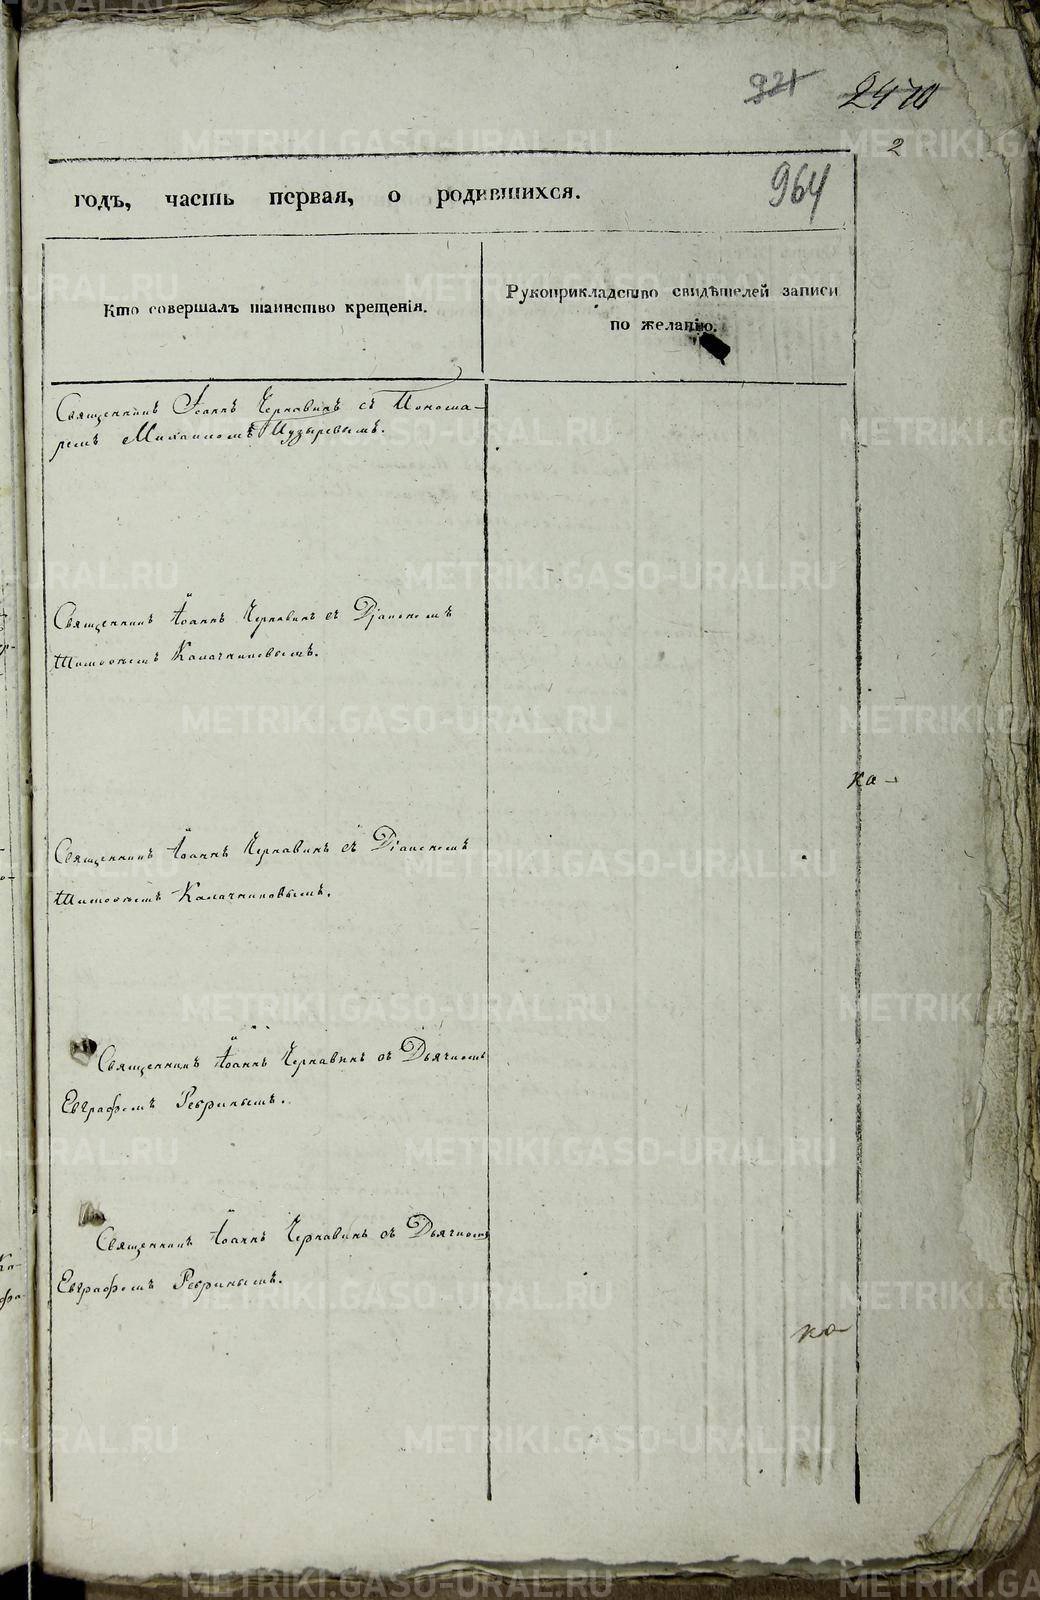 921 2470
2
964
годъ, часть первая, о родившихся.
Кто совершалъ таинство крещенія.
Рукоприкладство свидѣтелей записи
по желанію.
Священникъ Іоаннъ Чернавинъ съ Понома-
ремъ Михаиломъ Пузыревымъ.
Священникъ Іоаннъ Чернавинъ съ Діакономъ
Шишовымъ Калачниковымъ.
ка-
Священникъ Іоаннъ Чернавинъ съ Діакономъ
Калачниковымъ.
Священникъ Іоаннъ Чернавинъ съ Дьячкомъ
Евграфомъ Ребринымъ.
Священникъ Іоаннъ Чернавинъ съ Дьячкомъ
Евграфомъ Ребринымъ.
ко-
METRIKI.GASO-URAL.RU